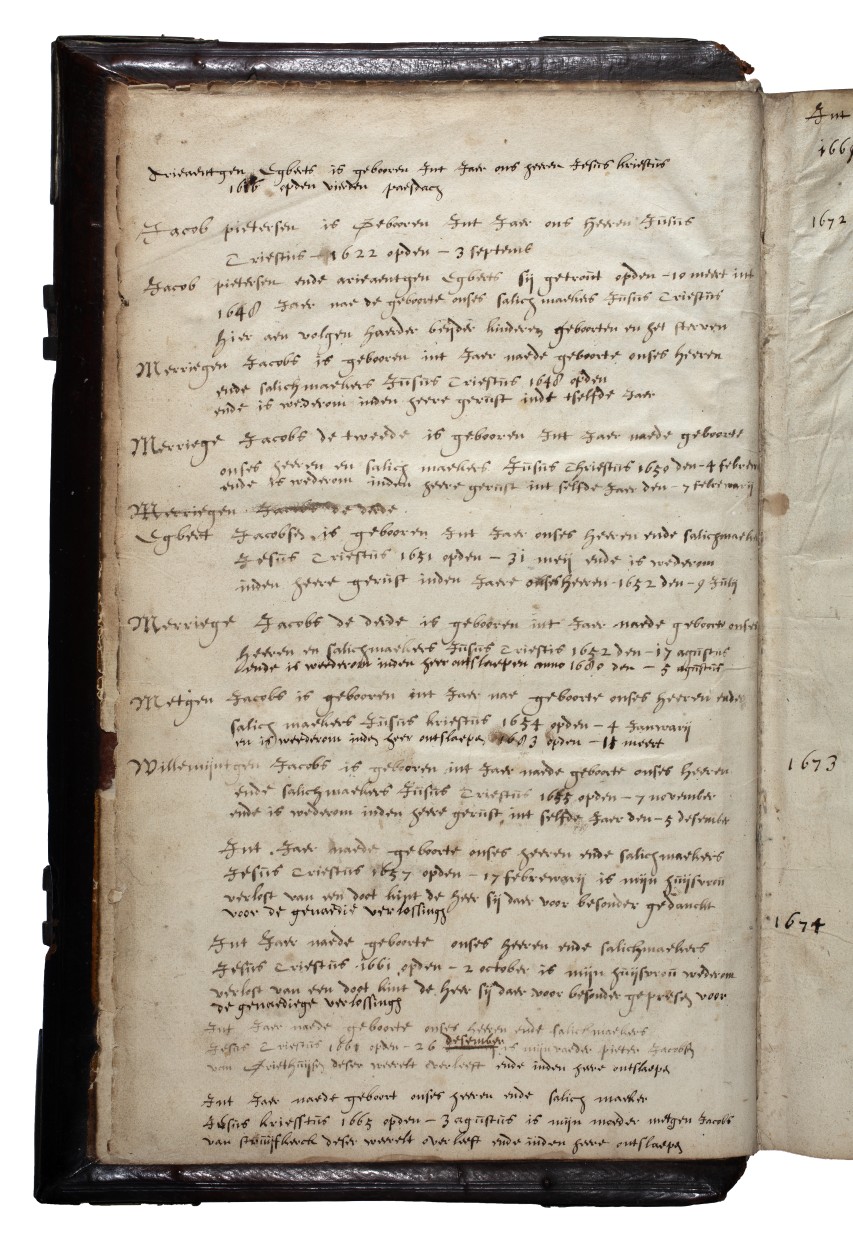 Arieaentgen Egberts is gebooren Int Jaer ons heeren Jesus kriestus
opden vierden paesdach
Jacob pietersen is Geboren Int Jaer ons Heeren Jusus
Criestus - 1622 opden - 3 septemb
Jacob pietersen ende arieaentgen Egberts sij getrout opden - 10 meert int
1648 Jaer nae de geboorte onses salich maekers Jusus Criestus
hier aen volgen haerder beijder kinderen geboorten en het sterven
Merriegen Jacobs is gebooren int Jaer naede geboorte onses heeren
ende salichmaekers Jusus Criestus 1648 opden
ende is wederom inden heere gerust inde tselfde Jaer
Merriege Jacobs de tweede is gebooren Int Jaer naede geboorte
onses heeren en salich maekers Jusus Chriestus 1650 den - 4 febrew
ende is wederom inden heere gerust int selfde Jaer den - 7 febrewarij
Merriegen Jacobs de dede
Egbert Jacobsen is gebooren Int Jaer onses heeren ende salichmaekers
Jesus Criestus 1651 opden - 31 meij ende is wederom
inden heere gerust inden Jaere onses heeren - 1652 den - 9 Julij
Merriege Jacobs de dede is gebooren int Jaer naede geboorte onses
Heeren en salichmaekers Jusus Criestis 1652 den - 17 agustus
ende is weederom inden heer ontslaepen anno 1680 den - 5 agustus
Metgen Jacobs is gebooren int Jaer nae geboorte onses heeren ende
salich maekers Jusus kriestus 1654 opden - 4 Januwarij
en is weederom inden heer ontslaepen 1683 opden - 11 meert
Willemijntgen Jacobs is gebooren int Jaer naede geboorte onses heeren
ende salichmaekers Jusus Criestus 1655 opden - 7 november
ende is wederom inden heere gerust int selfde Jaer den - 5 desember
Int Jaer naede geboorte onses heeren ende salichmaekers
Jesus Criestus 1657 opden - 17 febrewarij is mijn huijsvrou
verlost van een doot kint de heer sij daer voor besonder gedanckt
voor de genaedie verlossingh
Int Jaer naede geboorte onses heeren ende salichmaekers
Jesus Criestus 1661 opden - 2 october is mijn huijsvrou wederom
verlost van een doot kint de heer sij daer voor besonder gepresen voor
de genaediege verlossingh
Int Jaer naede geboorte onses heeren ende salichmaekers
Jesus Criestus 1661 opden - 26 desember is mijn vaeder pieter Jacobsen
van Griethuijsen deser werelt overleeft ende inden here ontslaepen
Int Jaer naede geboort onses heeren ende salich maeker
Jesus kriesstus 1665 opden - 3 agustus is mijn moeder metgen Jacobs
van deser werelt over leeft ende inden here ontslaepen
Int
1672
1673
1674